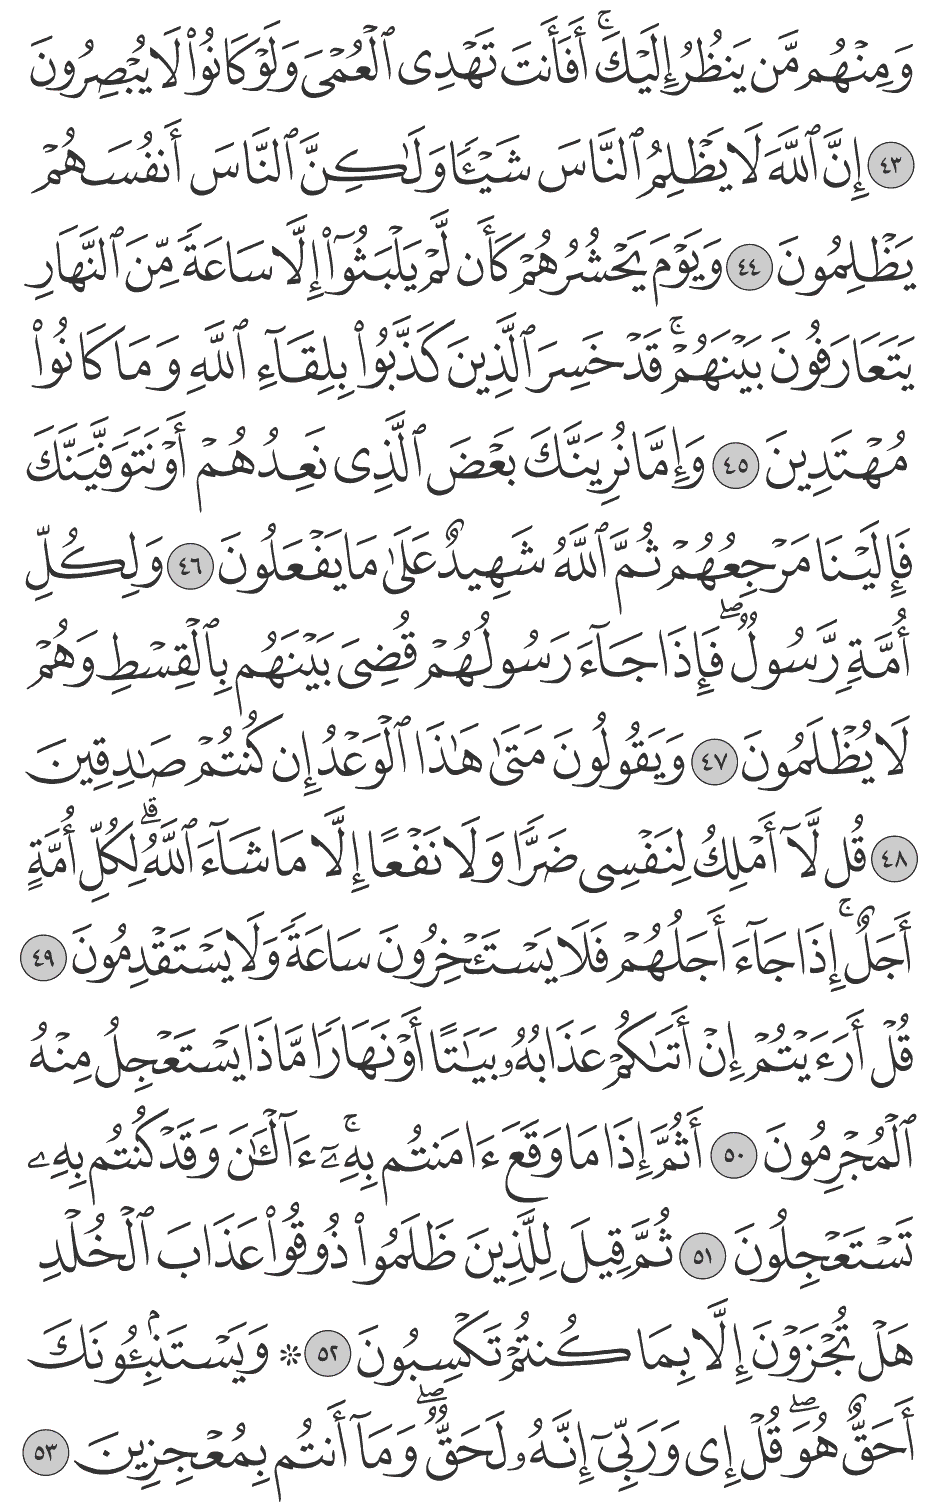 وَمِنْهُم مَّن يَنظُرُ إِلَيْكَ ۚ أَفَأَنتَ تَهْدِى ٱلْعُمْىَ وَلَوْ كَانُوا۟ لَا يُبْصِرُونَ
٤٣ إِنَّ ٱللَّهَ لَا يَظْلِمُ ٱلنَّاسَ شَيْـًٔا وَلَـٰكِنَّ ٱلنَّاسَ أَنفُسَهُمْ
يَظْلِمُونَ ٤٤ وَيَوْمَ يَحْشُرُهُمْ كَأَن لَّمْ يَلْبَثُوٓا۟ إِلَّا سَاعَةً مِّنَ ٱلنَّهَارِ
يَتَعَارَفُونَ بَيْنَهُمْ ۚ قَدْ خَسِرَ ٱلَّذِينَ كَذَّبُوا۟ بِلِقَآءِ ٱللَّهِ وَمَا كَانُوا۟
مُهْتَدِينَ ٤٥ وَإِمَّا نُرِيَنَّكَ بَعْضَ ٱلَّذِى نَعِدُهُمْ أَوْ نَتَوَفَّيَنَّكَ
فَإِلَيْنَا مَرْجِعُهُمْ ثُمَّ ٱللَّهُ شَهِيدٌ عَلَىٰ مَا يَفْعَلُونَ ٤٦ وَلِكُلِّ
أُمَّةٍ رَّسُولٌ ۖ فَإِذَا جَآءَ رَسُولُهُمْ قُضِىَ بَيْنَهُم بِٱلْقِسْطِ وَهُمْ
لَا يُظْلَمُونَ ٤٧ وَيَقُولُونَ مَتَىٰ هَـٰذَا ٱلْوَعْدُ إِن كُنتُمْ صَـٰدِقِينَ
٤٨ قُل لَّآ أَمْلِكُ لِنَفْسِى ضَرًّا وَلَا نَفْعًا إِلَّا مَا شَآءَ ٱللَّهُ ۗ لِكُلِّ أُمَّةٍ
أَجَلٌ ۚ إِذَا جَآءَ أَجَلُهُمْ فَلَا يَسْتَـْٔخِرُونَ سَاعَةً وَلَا يَسْتَقْدِمُونَ ٤٩
قُلْ أَرَءَيْتُمْ إِنْ أَتَىٰكُمْ عَذَابُهُۥ بَيَـٰتًا أَوْ نَهَارًا مَّاذَا يَسْتَعْجِلُ مِنْهُ
ٱلْمُجْرِمُونَ ٥٠ أَثُمَّ إِذَا مَا وَقَعَ ءَامَنتُم بِهِۦٓ ۚ ءَآلْـَٔـٰنَ وَقَدْ كُنتُم بِهِۦ
تَسْتَعْجِلُونَ ٥١ ثُمَّ قِيلَ لِلَّذِينَ ظَلَمُوا۟ ذُوقُوا۟ عَذَابَ ٱلْخُلْدِ
هَلْ تُجْزَوْنَ إِلَّا بِمَا كُنتُمْ تَكْسِبُونَ ٥٢ ۞ وَيَسْتَنۢبِـُٔونَكَ
أَحَقٌّ هُوَ ۖ قُلْ إِى وَرَبِّىٓ إِنَّهُۥ لَحَقٌّ ۖ وَمَآ أَنتُم بِمُعْجِزِينَ ٥٣